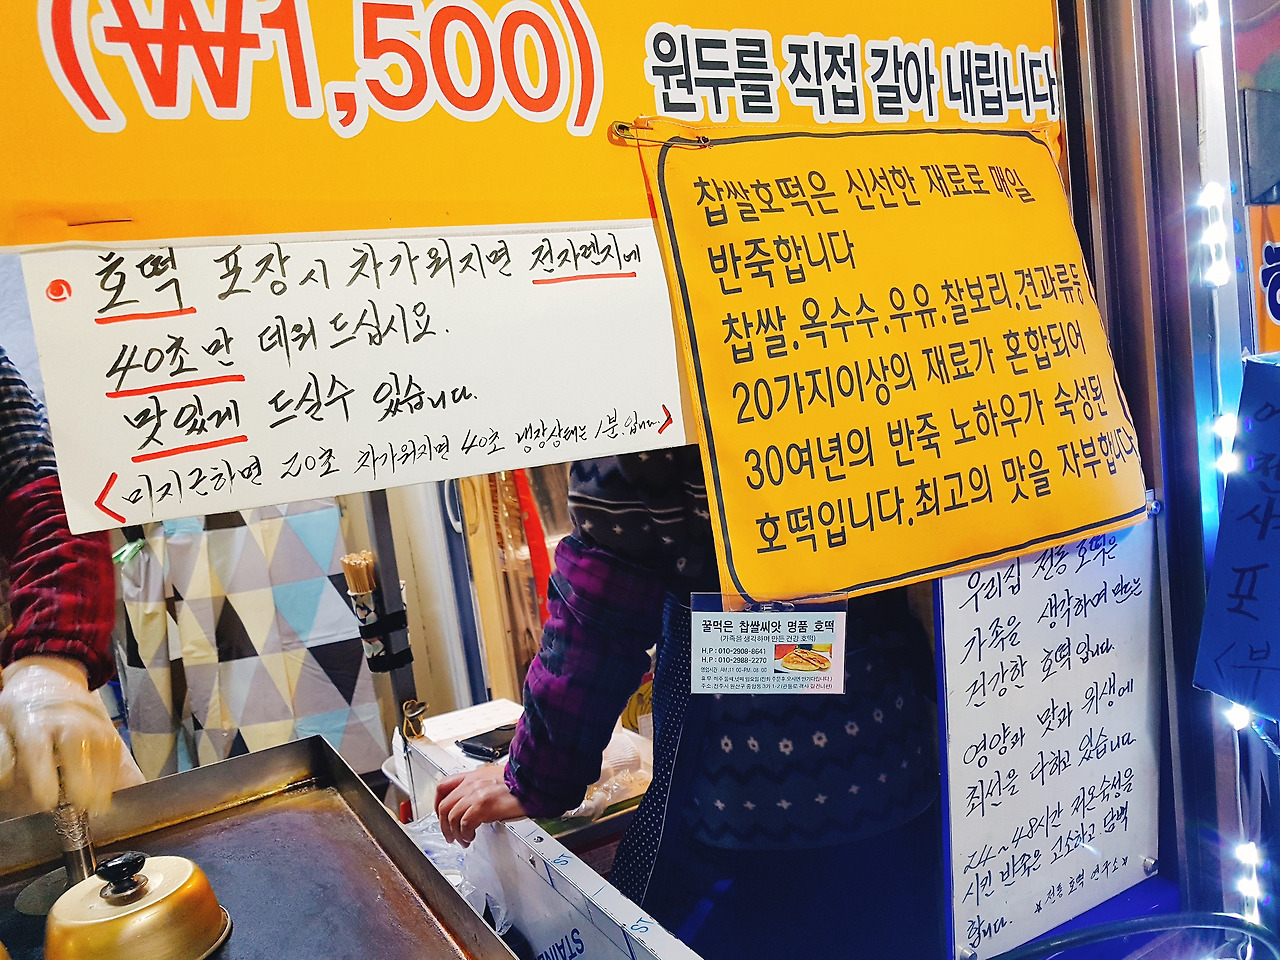 (₩1,500)
원두를 직접 갈아 내립니다
호떡 포장시 차가워지면 전자렌지에
40초만 데워 드십시요.
맛있게 드실수 있습니다.
미지근하면 20초 차가워지면 40초 냉장상태는 1분.입니다.
찹쌀호떡은 신선한 재료로 매일
반죽합니다
찹쌀.옥수수.우유.찰보리.견과류등
20가지이상의 재료가 혼합되어
30여년의 반죽 노하우가 숙성된
호떡입니다.최고의 맛을 자부합니다
꿀먹은 찹쌀씨앗 명품 호떡
(가족을 생각하며 만든 건강 호떡)
H.P : 010-2908-8641
H.P : 010-2988-2270
영업시간 : AM.11:00~PM.08:00
우리집 전통 호떡은
가족을 생각하며 만드는
건강한 호떡입니다.
영양과 맛과 위생에
최선을 다하고 있습니다
24~48시간 저온숙성을
시킨 반죽은 고소하고 담백
합니다. *전통 호떡 연구소*
STAIN